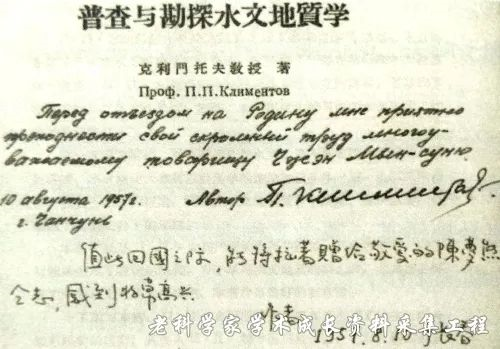 普查与勘探水文地質学
克利門托夫敎授 著
Prof. П.П.Климентов
Перед отъездом на Родину мне приятно
преподнести свой скромный труд многоу-
важаемому товарищу Чусэн Мын-суню.
10 августа 1957г. Автор П. Климентов
г. Чанчунь
值此回國之际，能将拙著贈给敬爱的陳夢熊
仝志，感到非常高兴
作者
1957.8.10 于长春
老科学家学术成长资料采集工程